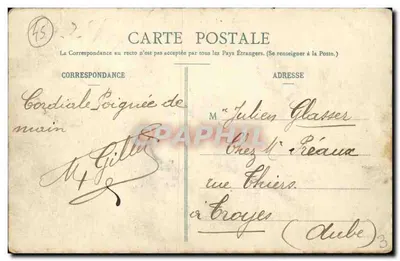 45
CARTE POSTALE
La Correspondance au recto n'est pas acceptée par tous les Pays Étrangers. (Se renseigner à la Poste.)
CORRESPONDANCE
Cordiale Poignée de
main
ADRESSE
M. Julien Glasser
Chez Mr Préaux
rue Thiers
à Troyes
(Aube)
3
PRAPHILY